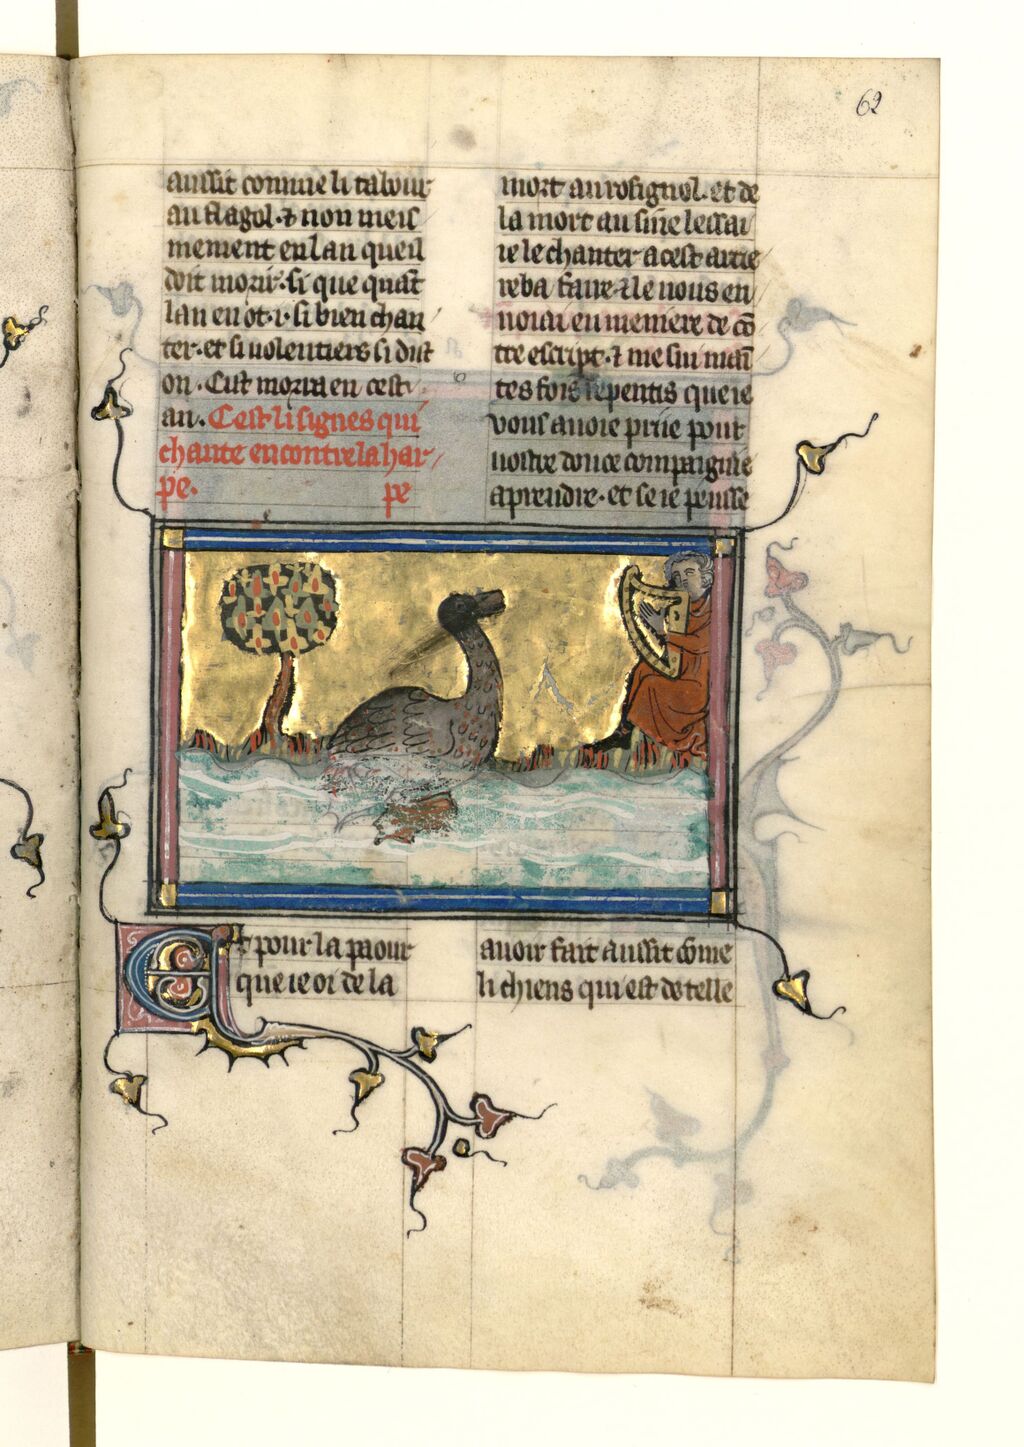 62
aussit comme li tabour
au flagol · ⁊ non meis
mement en lan queil
doit morir · si que quāt
lan en ot · i · si bien chan
ter · et si volentiers si dist
on · Cist morra en cest
an · Cest li signes qui
chante encontre la har
pe · pe
Et pour la paour
que ie oi de la
mort au rosignol · et de
la mort au sine lessai
ie le chanter a cest arriere
ba faire ⁊ le vous en
voiai en meniere de cō
tre escript · ⁊ me sui main
tes fois repentis que ie
vous avoie priie pour
vostre douce compaignie
aprendre · et se ie peusse
avoir fait aussit cōme
li chiens qui est de telle